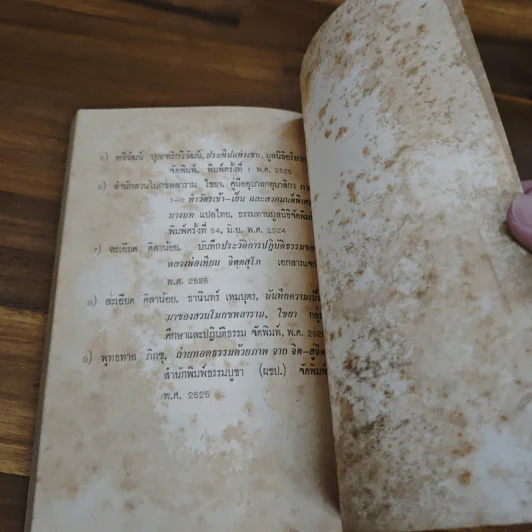 ๕) ทวีวัฒน์ ปุณฑริกวิวัฒน์, ประทีปแห่งเซน, มูลนิธิ
จัดพิมพ์, พิมพ์ครั้งที่ ๑ พ.ศ. 2525
๖) สำนักสวนโมกขพลาราม ไชยา, คู่มืออุบาสกอุบาสิกา ภา
๑-๒ ทำวัตรเช้า-เย็น และสวดมนต์พิเศ
บางบท แปลไทย, ธรรมทานมูลนิธิจัดพิม
พิมพ์ครั้งที่ 54, มิ.ย. พ.ศ. 2524
๗) ละเอียด ศิลาน้อย, บันทึกประวัติการปฏิบัติธรรมขอ
หลวงพ่อเทียน จิตตสุโภ เอกสารแจก
พ.ศ. 2525
๘) ละเอียด ศิลาน้อย, ธานินทร์ เหมบุตร, บันทึกความเป็
มาของสวนโมกขพลาราม, ไชยา กลุ่
ศึกษาและปฏิบัติธรรม จัดพิมพ์, พ.ศ. 252
๙) พุทธทาส ภิกขุ, ถ่ายทอดธรรมด้วยภาพ จาก จิต-สู่จิต
สำนักพิมพ์ธรรมบูชา (ผชป.) จัดพิมพ์
พ.ศ. 2525